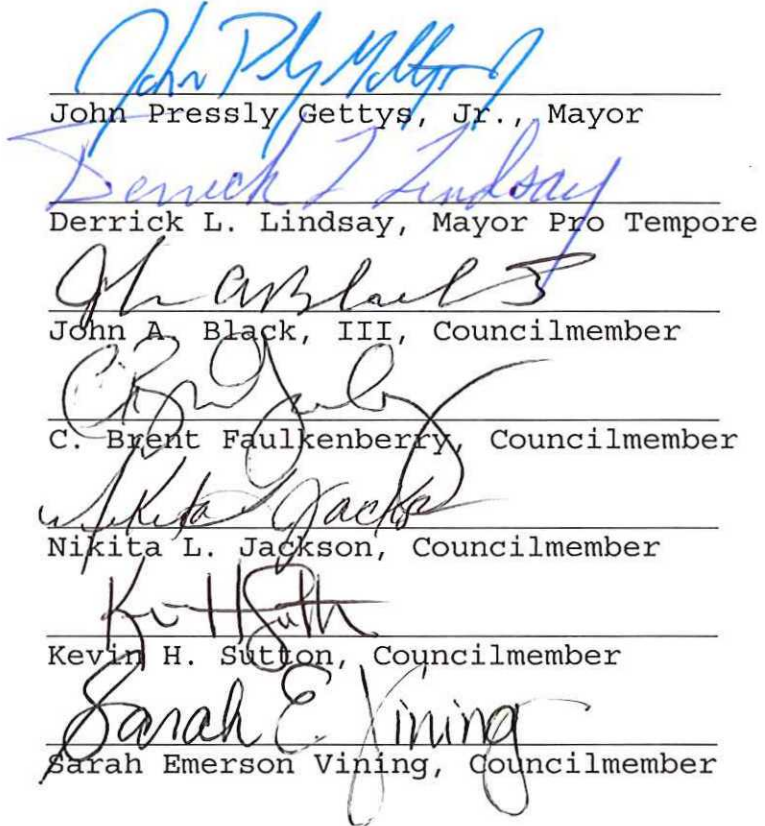 John Pressly Gettys, Jr., Mayor
Derrick L Lindsay
Derrick L. Lindsay, Mayor Pro Tempore
John A Black III
John A. Black, III, Councilmember
C. Brent Faulkenberry, Councilmember
Nikita Jackson
Nikita L. Jackson, Councilmember
Kevin H. Sutton, Councilmember
Sarah E. Vining
Sarah Emerson Vining, Councilmember